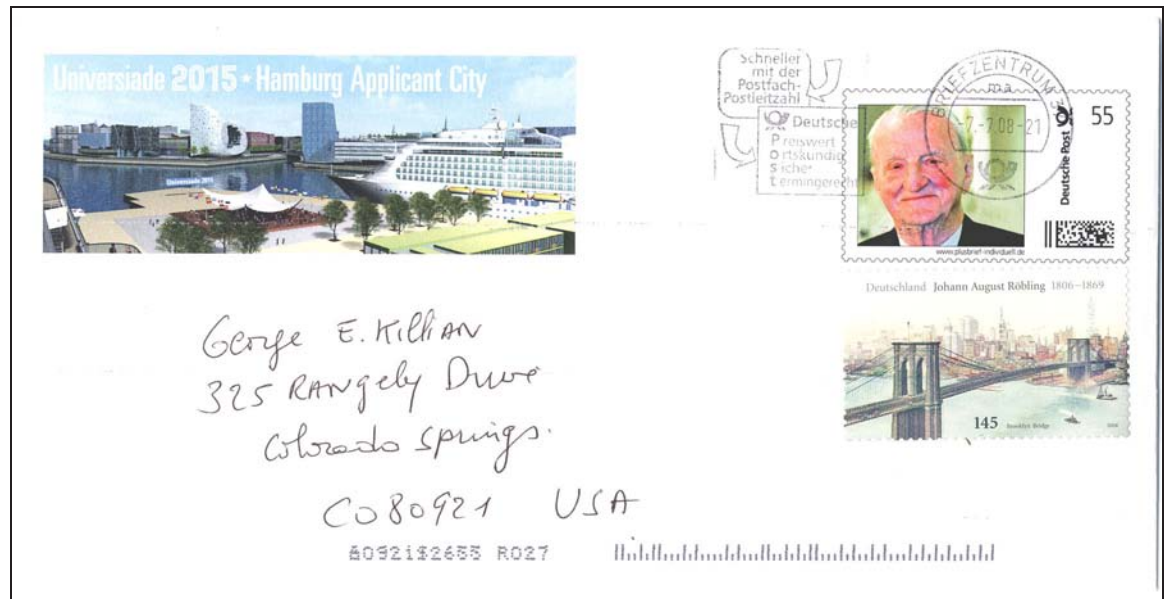 Universiade 2015 * Hamburg Applicant City
Universiade 2015
Schneller
mit der
Postfach-
Postleitzahl
Deutsche
Preiswert
ortskundig
sicher
termingerecht
BRIEFZENTRUM 3
ma
-7.-7.08-21
Deutsche Post
55
www.plusbrief-individuell.de
Deutschland Johann August Röbling 1806–1869
145 Brooklyn Bridge 2006
George E. Killian
325 Rangely Drive
Colorado Springs.
CO80921 USA
80921$2655 R027